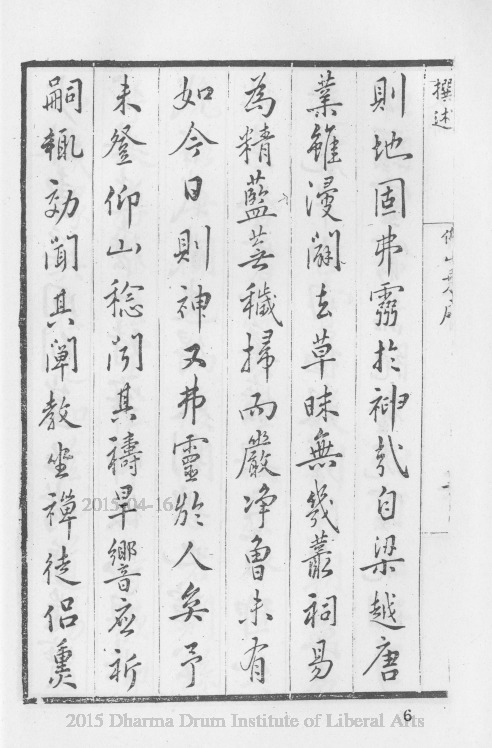 撰述
則地固弗靈於神矣自梁越唐
業雖漫闢去草昧無幾叢祠易
為精藍芸穢掃而嚴净魯未有
如今日則神又弗靈於人矣予
未登仰山稔聞其禱旱響應祈
嗣輒効聞其闡教坐禪徒侶熏
2015-04-16
6
2015 Dharma Drum Institute of Liberal Arts